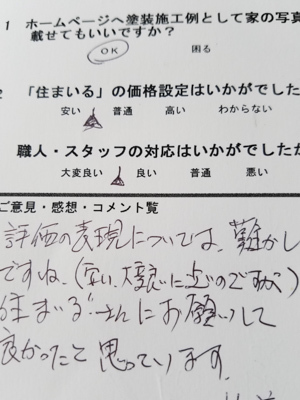 1 ホームページへ塗装施工例として家の写真
載せてもいいですか?
OK 困る
「住まいる」の価格設定はいかがでした
安い 普通 高い わからない
職人・スタッフの対応はいかがでした
大変良い 良い 普通 悪い
ご意見・感想・コメント覧
評価の表現については、難かし
ですね、(安い、大変良いに近いのですが)
住まいる さんにお願いして
良かったと思っています。